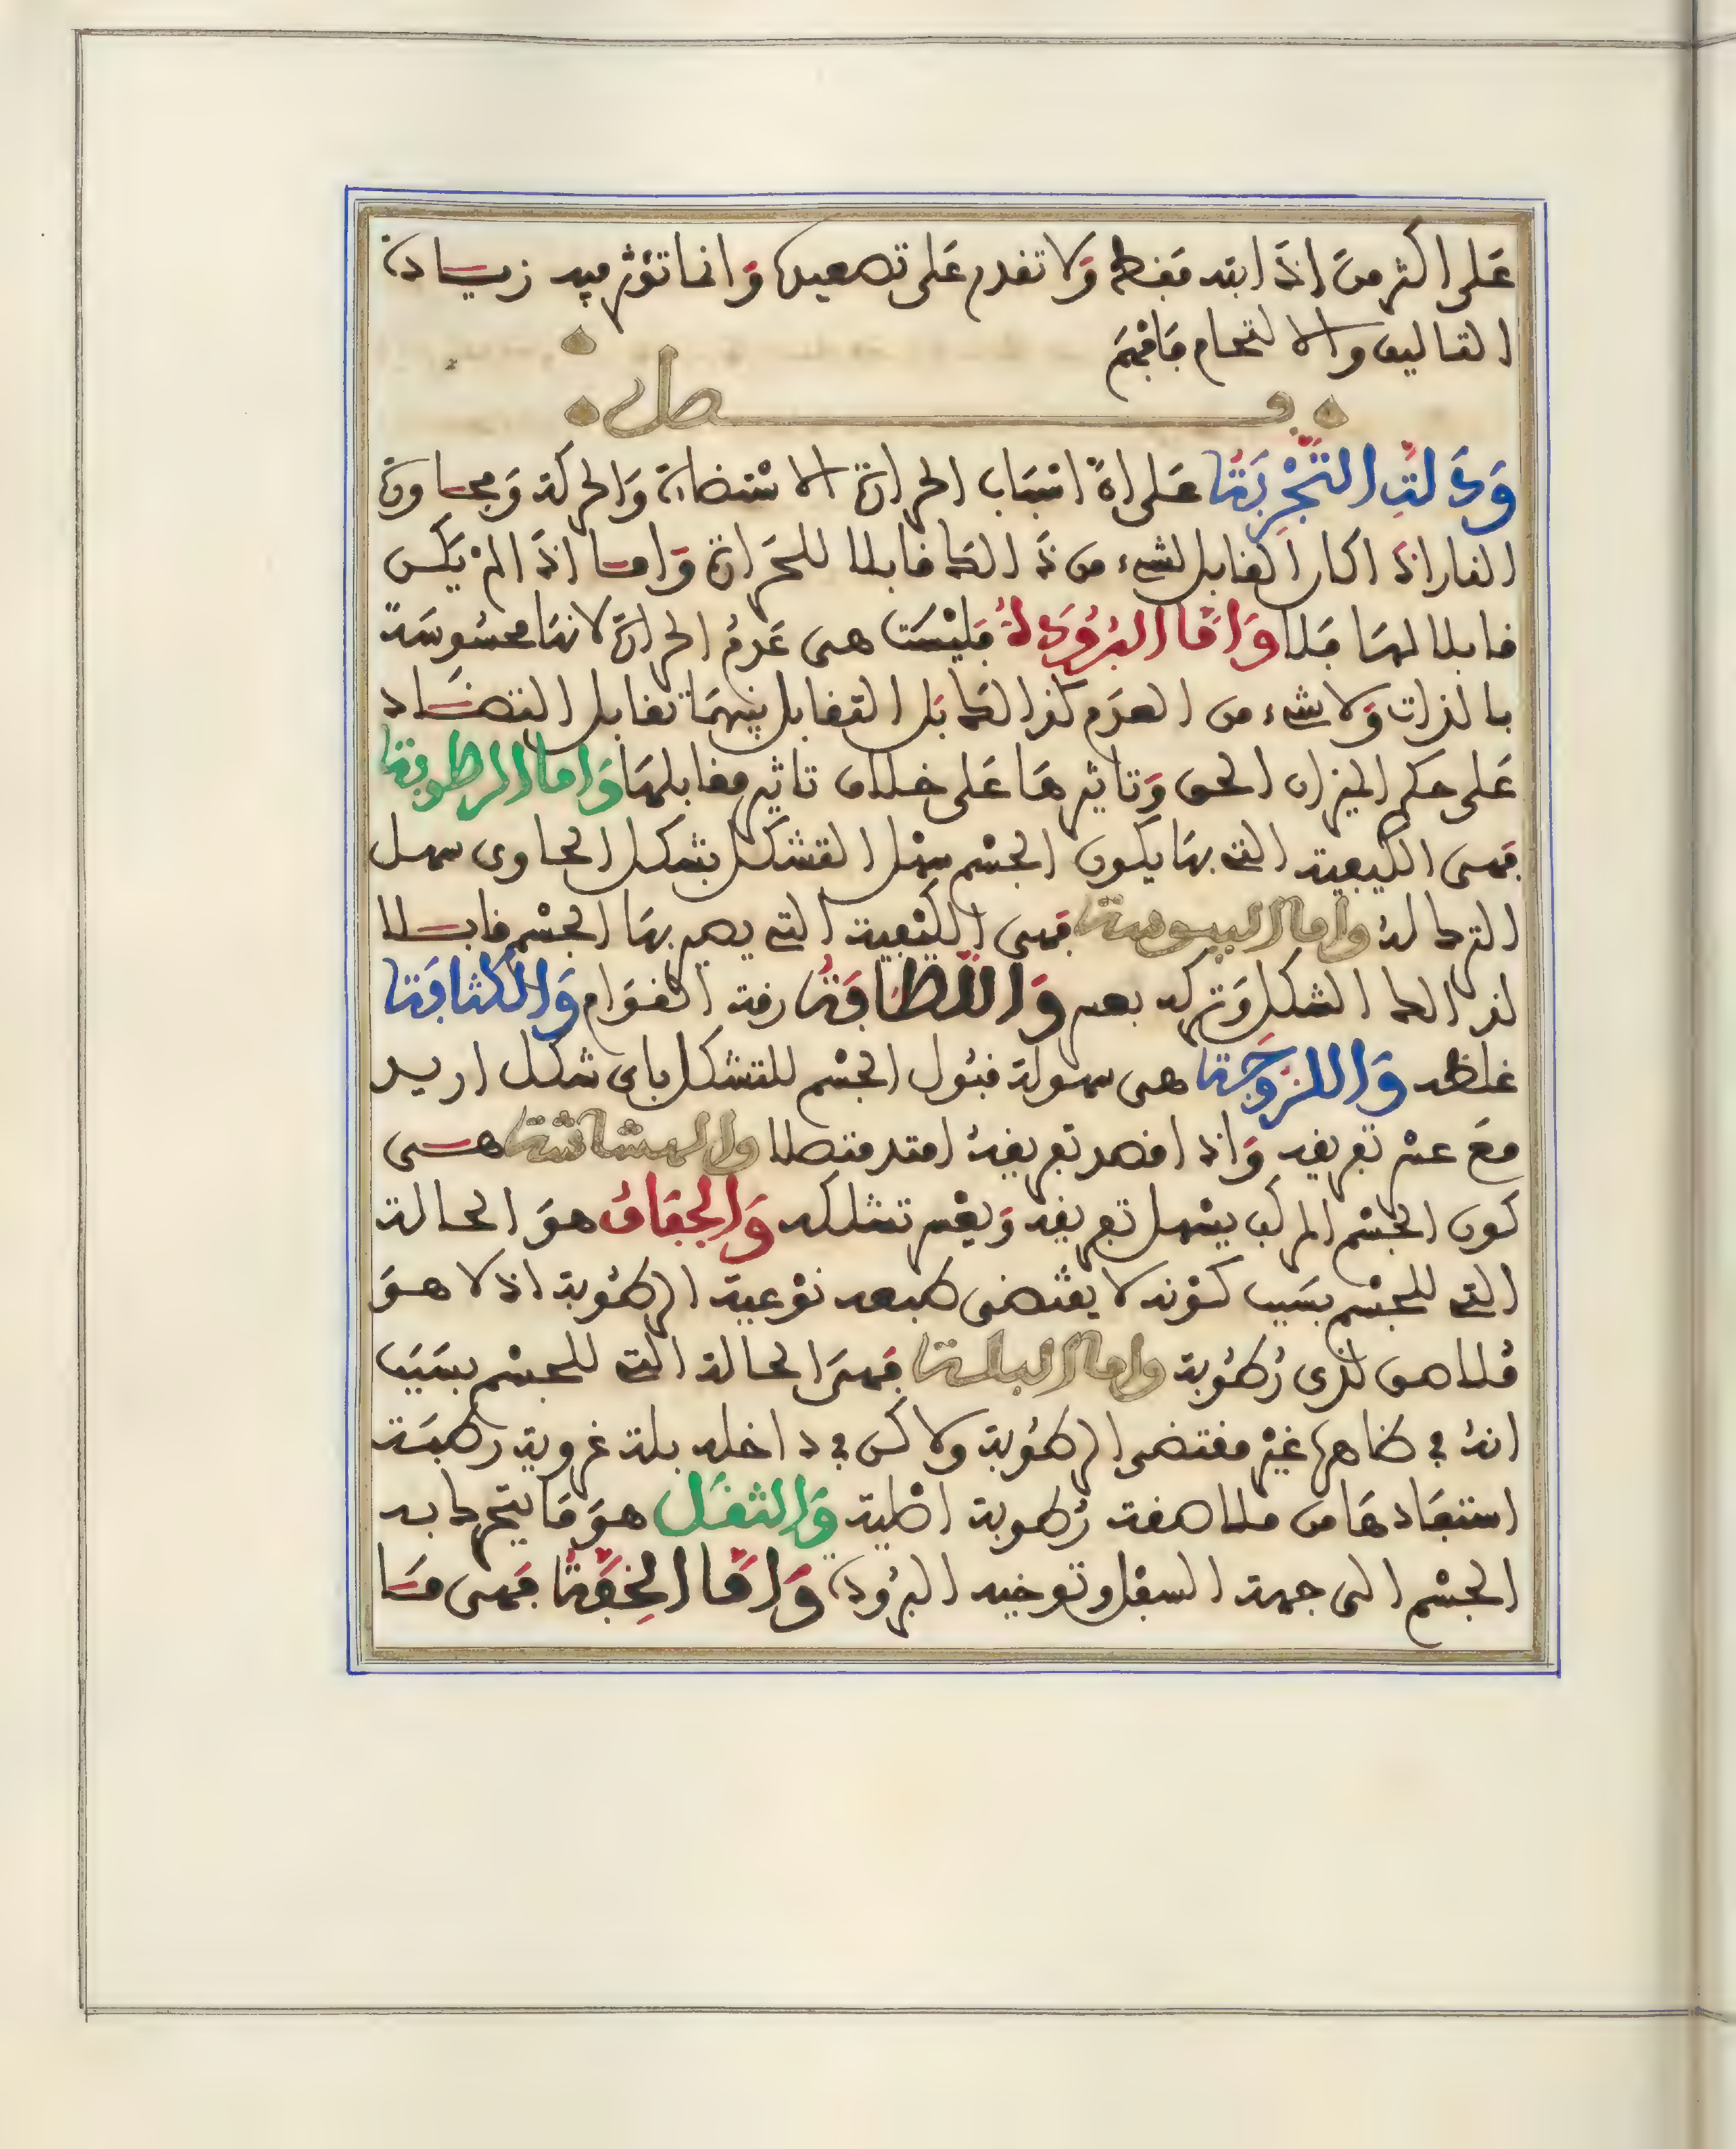 على اكثر من اذابته فقط ولا تقدر على تصعيده وانما تؤثر فيه زيادة
التاليف والالتحام فافهم
فصل
ودلت التجربة على ان اسباب الحرارة الاستضاءة والحركة ومجاورة
النار اذا كان القابل لشيء من ذالك قابلا للحرارة واما اذا لم يكن
قابلا لها فلا واما البرودة فليست هى عدم الحرارة لانها محسوسة
بالذات ولا شيء من العدم كذالك بل التقابل بينهما تقابل التضاد
على حكم الميزان الحق وتاثيرها على خلاف تاثير مقابلها واما الرطوبة
فهى الكيفية التى بها يكون الجسم سهل التشكل بشكل الحاوى سهل
الترك له واما اليبوسة فهى الكيفية التى يصير بها الجسم قابلا
لذالك الشكل وتركه بعسر واللطافة رقة القوام والكثافة
غلظه واللزوجة هى سهولة قبول الجسم للتشكل باى شكل اريد
مع عسر تفريقه واذا قصد تفريقه امتد متصلا والهشاشة هى
كون الجسم المركب يسهل تفريقه ويعسر تشكله والجفاف هو الحالة
التى للجسم بسبب كونه لا يقتضى طبعه نوعية الرطوبة اذ لا هو
ملاصق لذى رطوبة واما البلة فهى الحالة التى للجسم بسبب
انه في ظاهره غير مقتضى الرطوبة ولاكن في داخله بلة غروية رطبة
استفادها من ملاصقة رطوبة اصلية والثقل هو ما يتحرك به
الجسم الى جهة السفل وتوجبه البرودة واما الخفة فهى ما